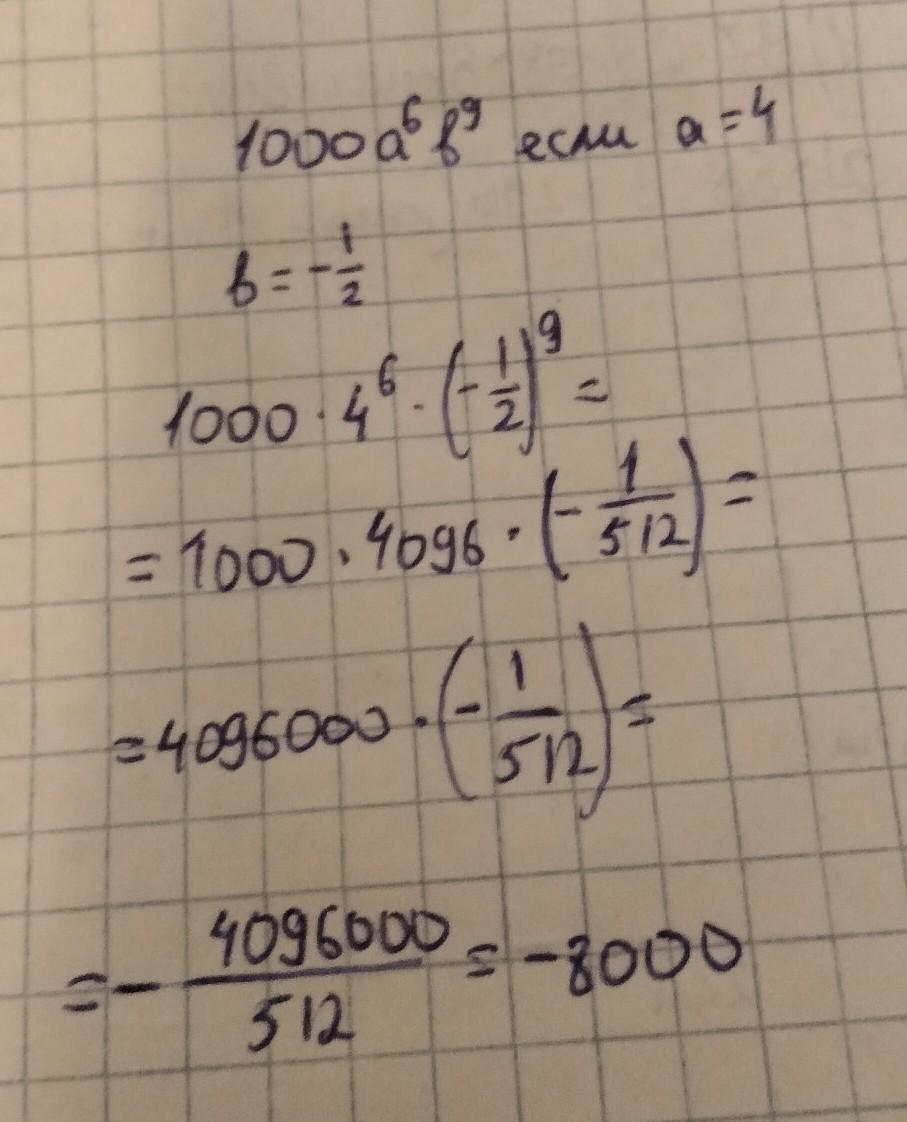 1000a⁶b⁹ если a=4
b=-1/2
1000·4⁶·(-1/2)⁹=
=1000·4096·(-1/512)=
=4096000·(-1/512)=
=-4096000/512=-8000